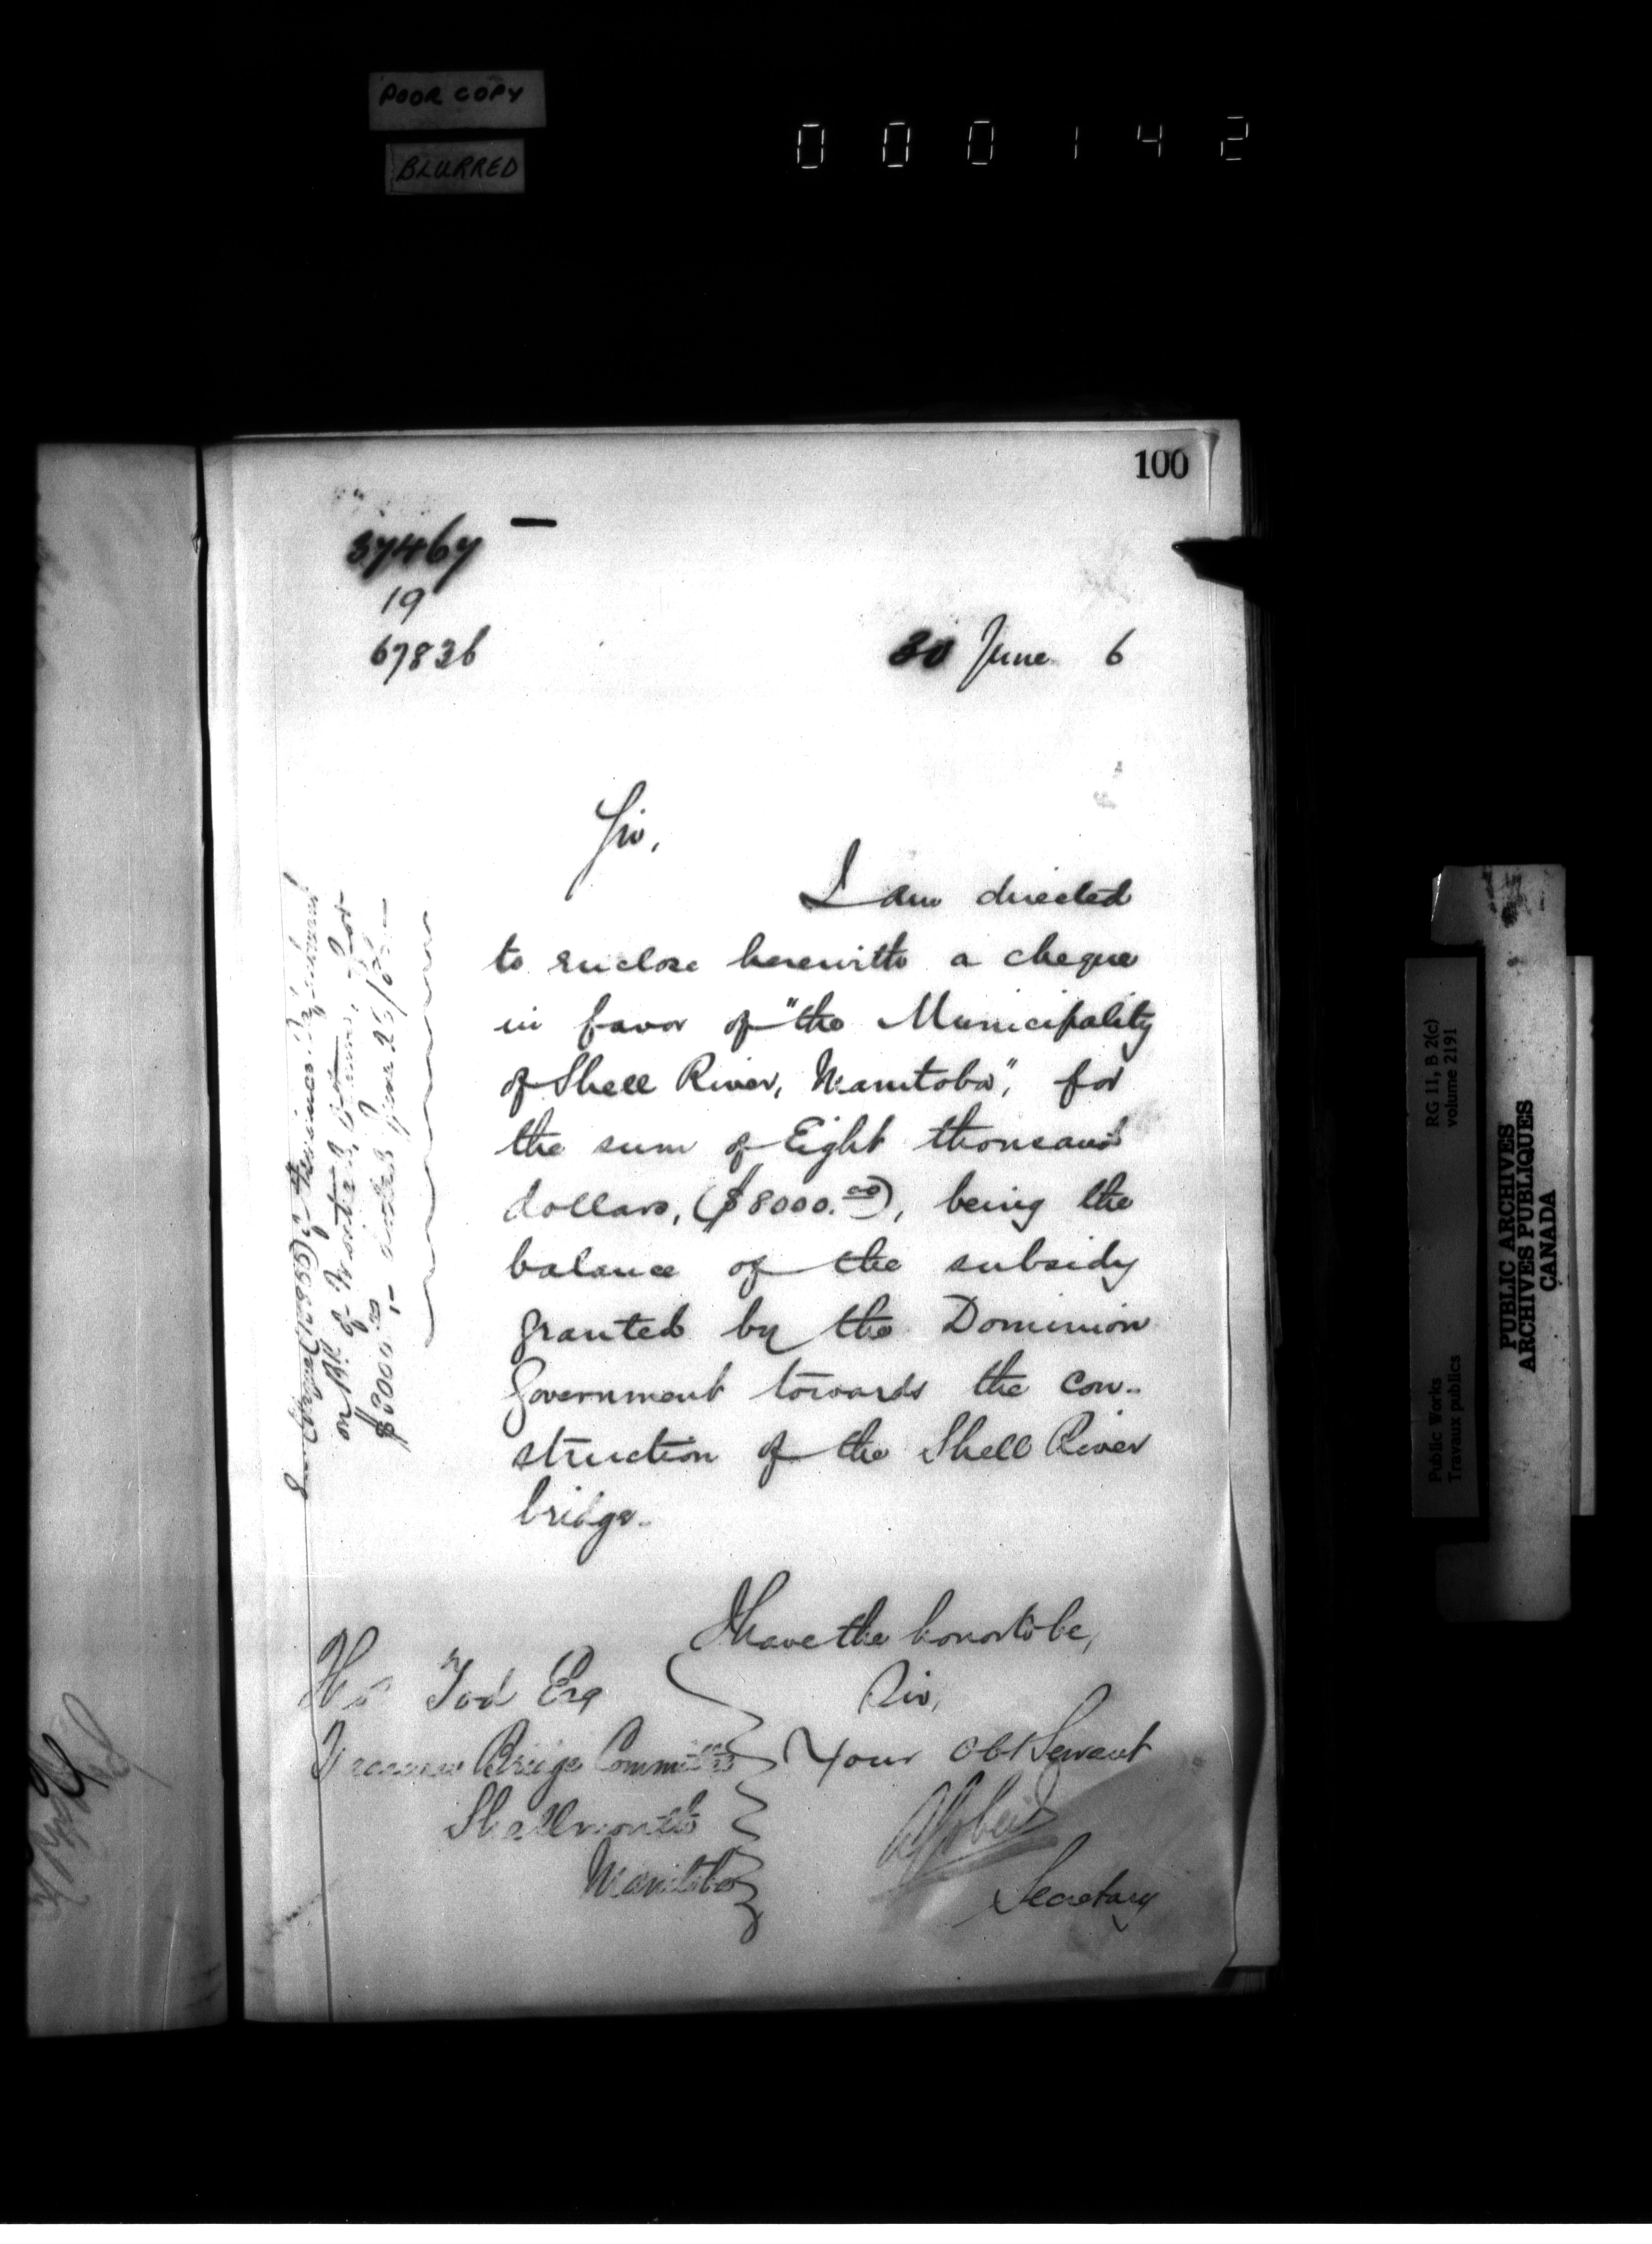 POOR COPY
BLURRED
000142
100
37467
19
67836
30 June 6
Sir,
I am directed
to enclose herewith a cheque
in favor of "the Municipality
of Shell River, Manitoba", for
the sum of Eight thousand
dollars, ($8000.00), being the
balance of the subsidy
granted by the Dominion
Government towards the con-
struction of the Shell River
bridge.
I have the honor to be,
Sir,
Your Obt Servant
Secretary
Tod Esq
Bridge Committee
Shellmouth
Manitoba
on Bk of Montreal, Ottawa, for
$8000.00 dated June 26/86
Public Works
Travaux publics
RG 11, B 2(c)
volume 2191
PUBLIC ARCHIVES
ARCHIVES PUBLIQUES
CANADA